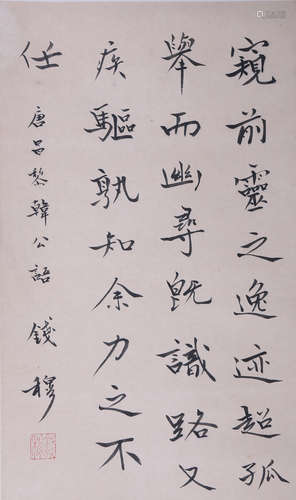 窺前靈之逸迹超孤
舉而幽尋既識路又
疾驅孰知余力之不
任
唐昌黎韓公語 錢穆